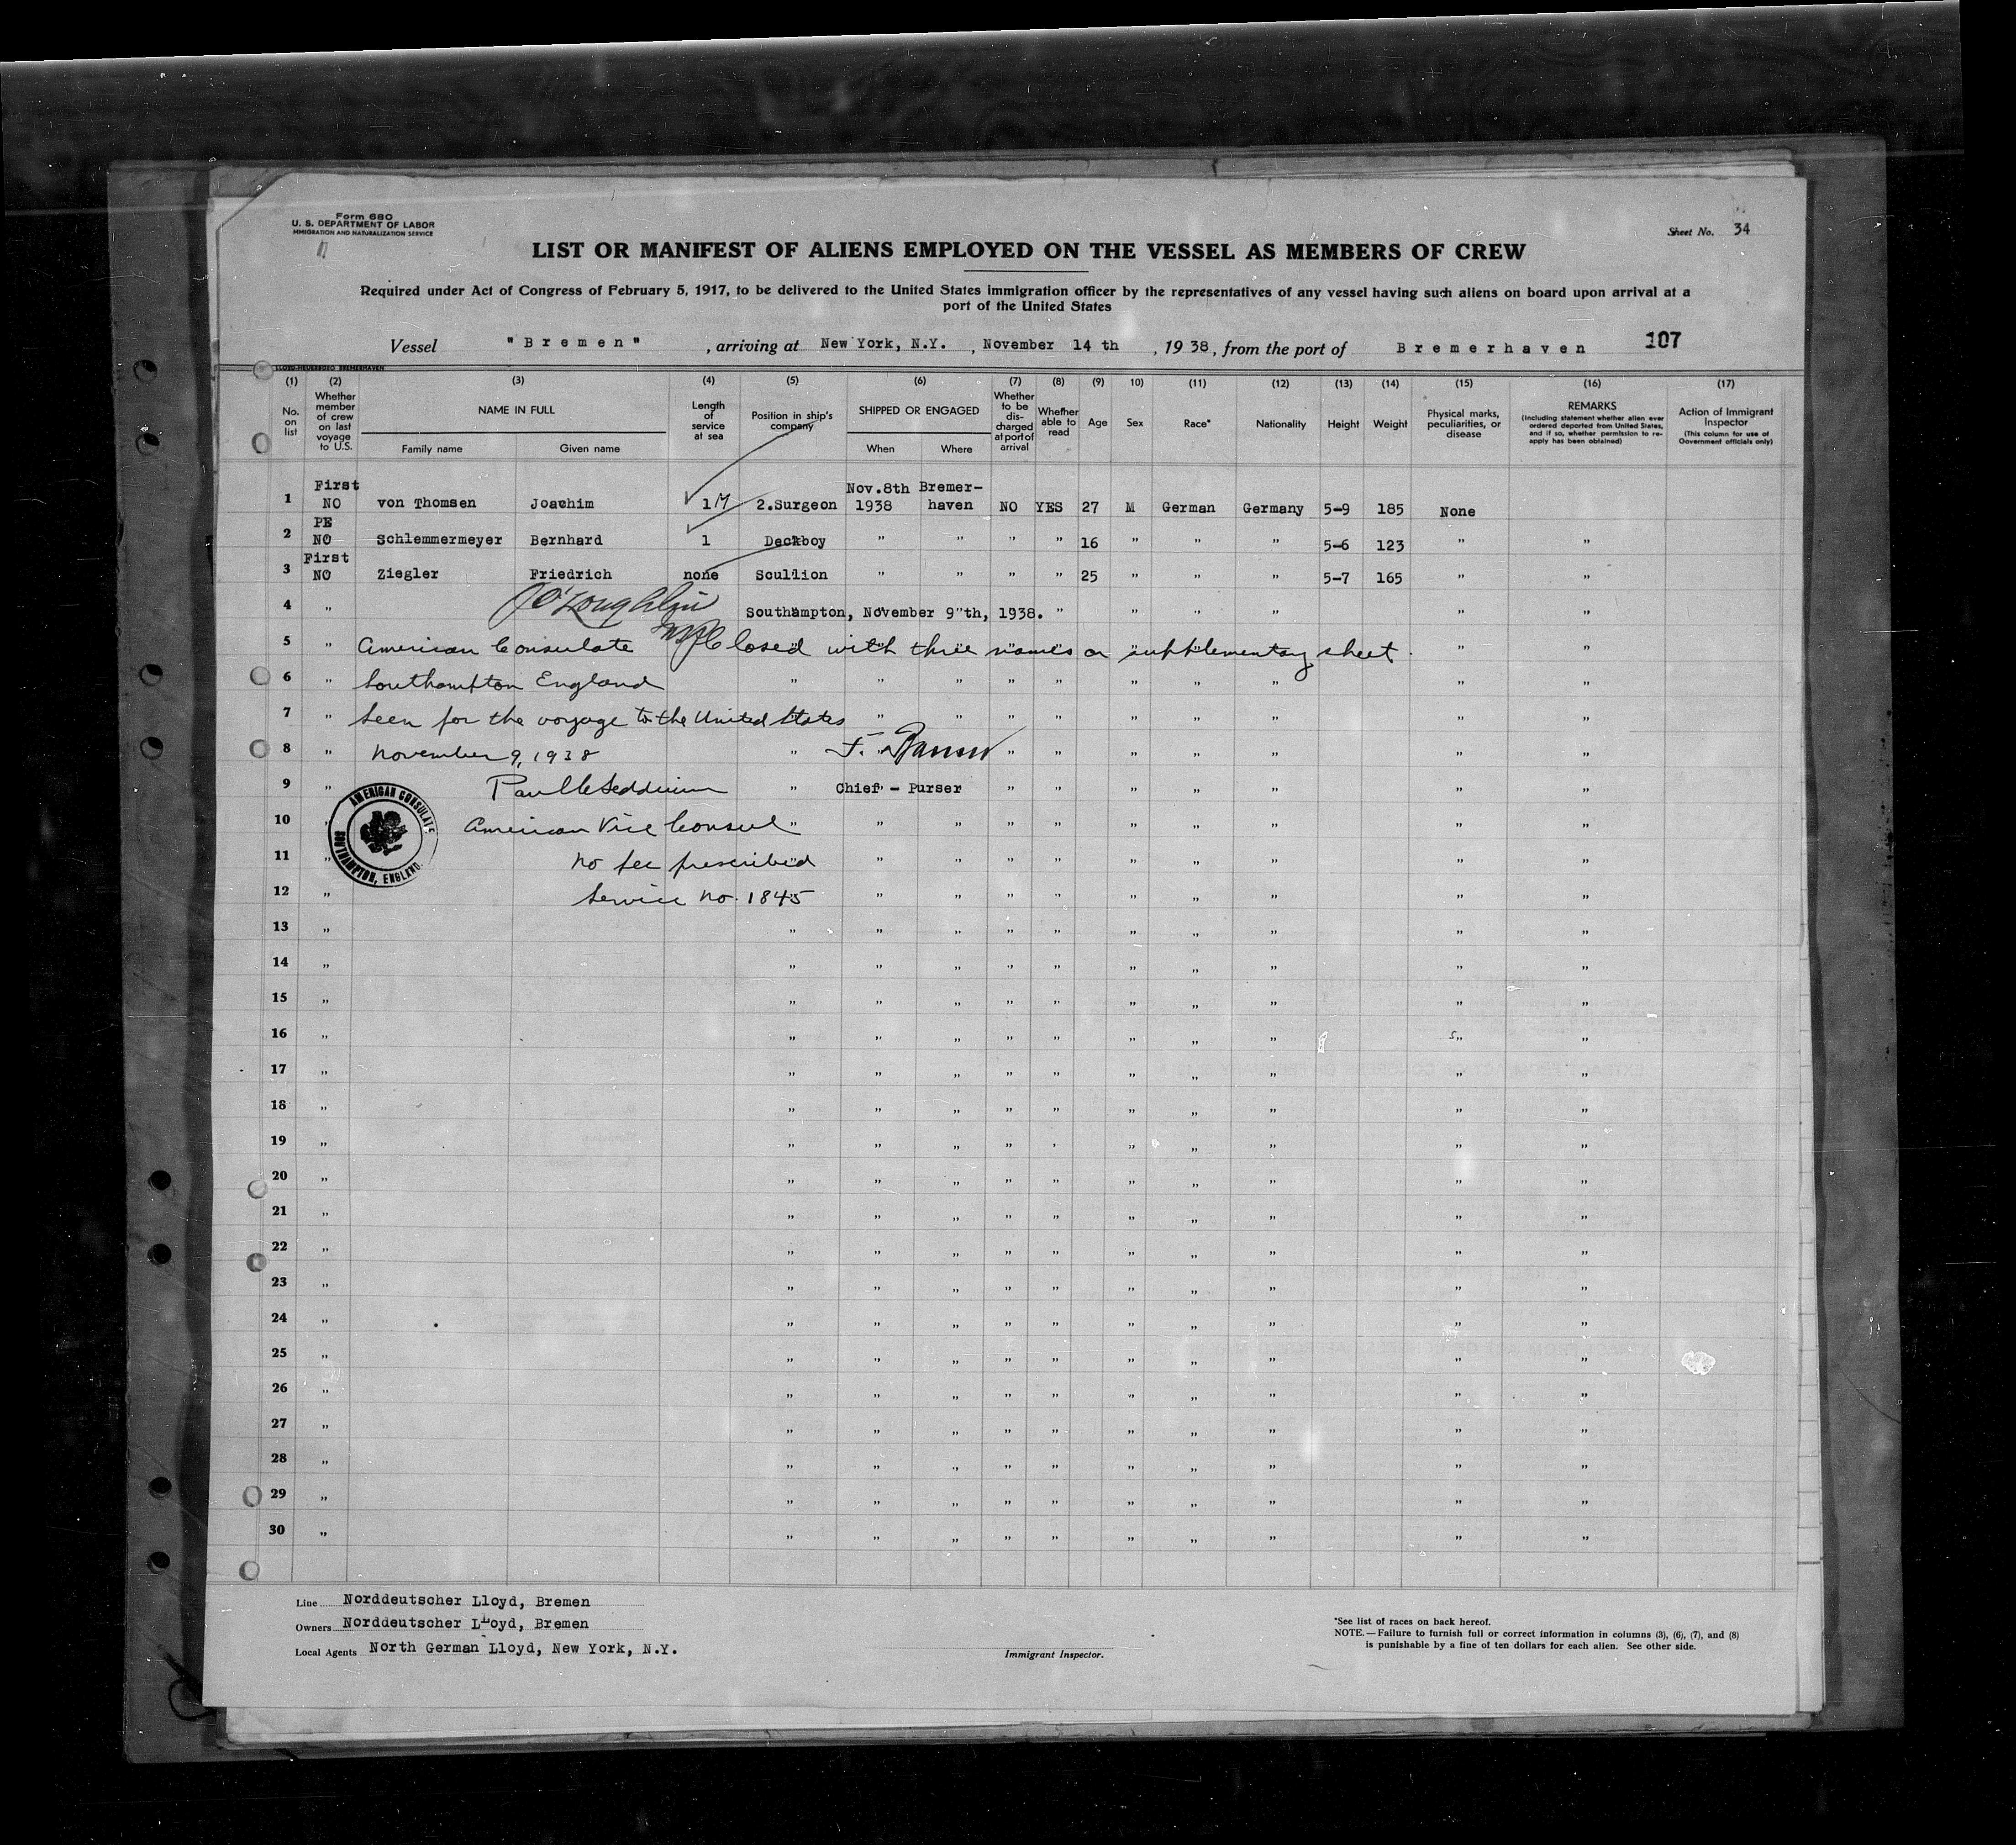 Form 680
U. S. DEPARTMENT OF LABOR
IMMIGRATION AND NATURALIZATION SERVICE
Sheet No. 34
LIST OR MANIFEST OF ALIENS EMPLOYED ON THE VESSEL AS MEMBERS OF CREW
Required under Act of Congress of February 5, 1917, to be delivered to the United States immigration officer by the representatives of any vessel having such aliens on board upon arrival at a
port of the United States
Vessel "Bremen", arriving at New York, N.Y., November 14 th, 1938, from the port of Bremerhaven 107
(1) (2) (3) (4) (5) (6) (7) (8) (9) 10) (11) (12) (13) (14) (15) (16) (17)
No. on list
Whether member of crew on last voyage to U.S.
NAME IN FULL
Family name
Given name
Length of service at sea
Position in ship's company
SHIPPED OR ENGAGED
When
Where
Whether to be discharged at port of arrival
Whether able to read
Age
Sex
Race*
Nationality
Height
Weight
Physical marks, peculiarities, or disease
REMARKS
(Including statement whether alien ever ordered deported from United States, and if so, whether permission to re-apply has been obtained)
Action of Immigrant Inspector
(This column for use of Government officials only)
1 First NO von Thomsen Joachim 1 2.Surgeon Nov.8th 1938 Bremer-haven NO YES 27 M German Germany 5-9 185 None
2 PE NO Schlemmermeyer Bernhard 1 Deckboy " " " " 16 " " " 5-6 123 " "
3 First NO Ziegler Friedrich none Scullion " " " " 25 " " " 5-7 165 " "
4 " O'Loughlin Southampton, November 9"th, 1938. " " " " " "
5 " American Consulate Closed with three names on supplementary sheet. " "
6 " Southampton England " " " " " " " " " "
7 " Seen for the voyage to the United States " " " " " " " " "
8 " November 9, 1938 " F. " " " " " " "
9 " Paul " Chief - Purser " " " " " " "
10 " American Vice Consul " " " " " " " " " "
11 " No fee prescribed " " " " " " " " "
12 " Service No. 1845 " " " " " " " " "
AMERICAN CONSULATE
SOUTHAMPTON, ENGLAND.
13 " " " " " " " " " " "
14 " " " " " " " " " " "
15 " " " " " " " " " " "
16 " " " " " " " " " " "
17 " " " " " " " " " " "
18 " " " " " " " " " " "
19 " " " " " " " " " " "
20 " " " " " " " " " " "
21 " " " " " " " " " " "
22 " " " " " " " " " " "
23 " " " " " " " " " " "
24 " " " " " " " " " " "
25 " " " " " " " " " " "
26 " " " " " " " " " " "
27 " " " " " " " " " " "
28 " " " " " " " " " " "
29 " " " " " " " " " " "
30 " " " " " " " " " " "
Line Norddeutscher Lloyd, Bremen
Owners Norddeutscher Lloyd, Bremen
Local Agents North German Lloyd, New York, N.Y.
Immigrant Inspector.
*See list of races on back hereof.
NOTE.—Failure to furnish full or correct information in columns (3), (6), (7), and (8)
is punishable by a fine of ten dollars for each alien. See other side.